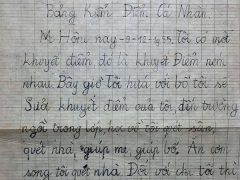 Bảng Kiểm Điểm Cá Nhân.
Hôm nay - 9 - 12 - Tôi có một
khuyết điểm đó là khuyết điểm ném
nhau. Bây giờ tôi hứa với bố tôi sẽ
suốt khuyết điểm của tôi, đến trường
ngồi trong lớp, học về tôi quét sân,
quét nhà, giúp mẹ, giúp bố. Ăn cơm
song tôi quét nhà. Đối với chú tôi thì